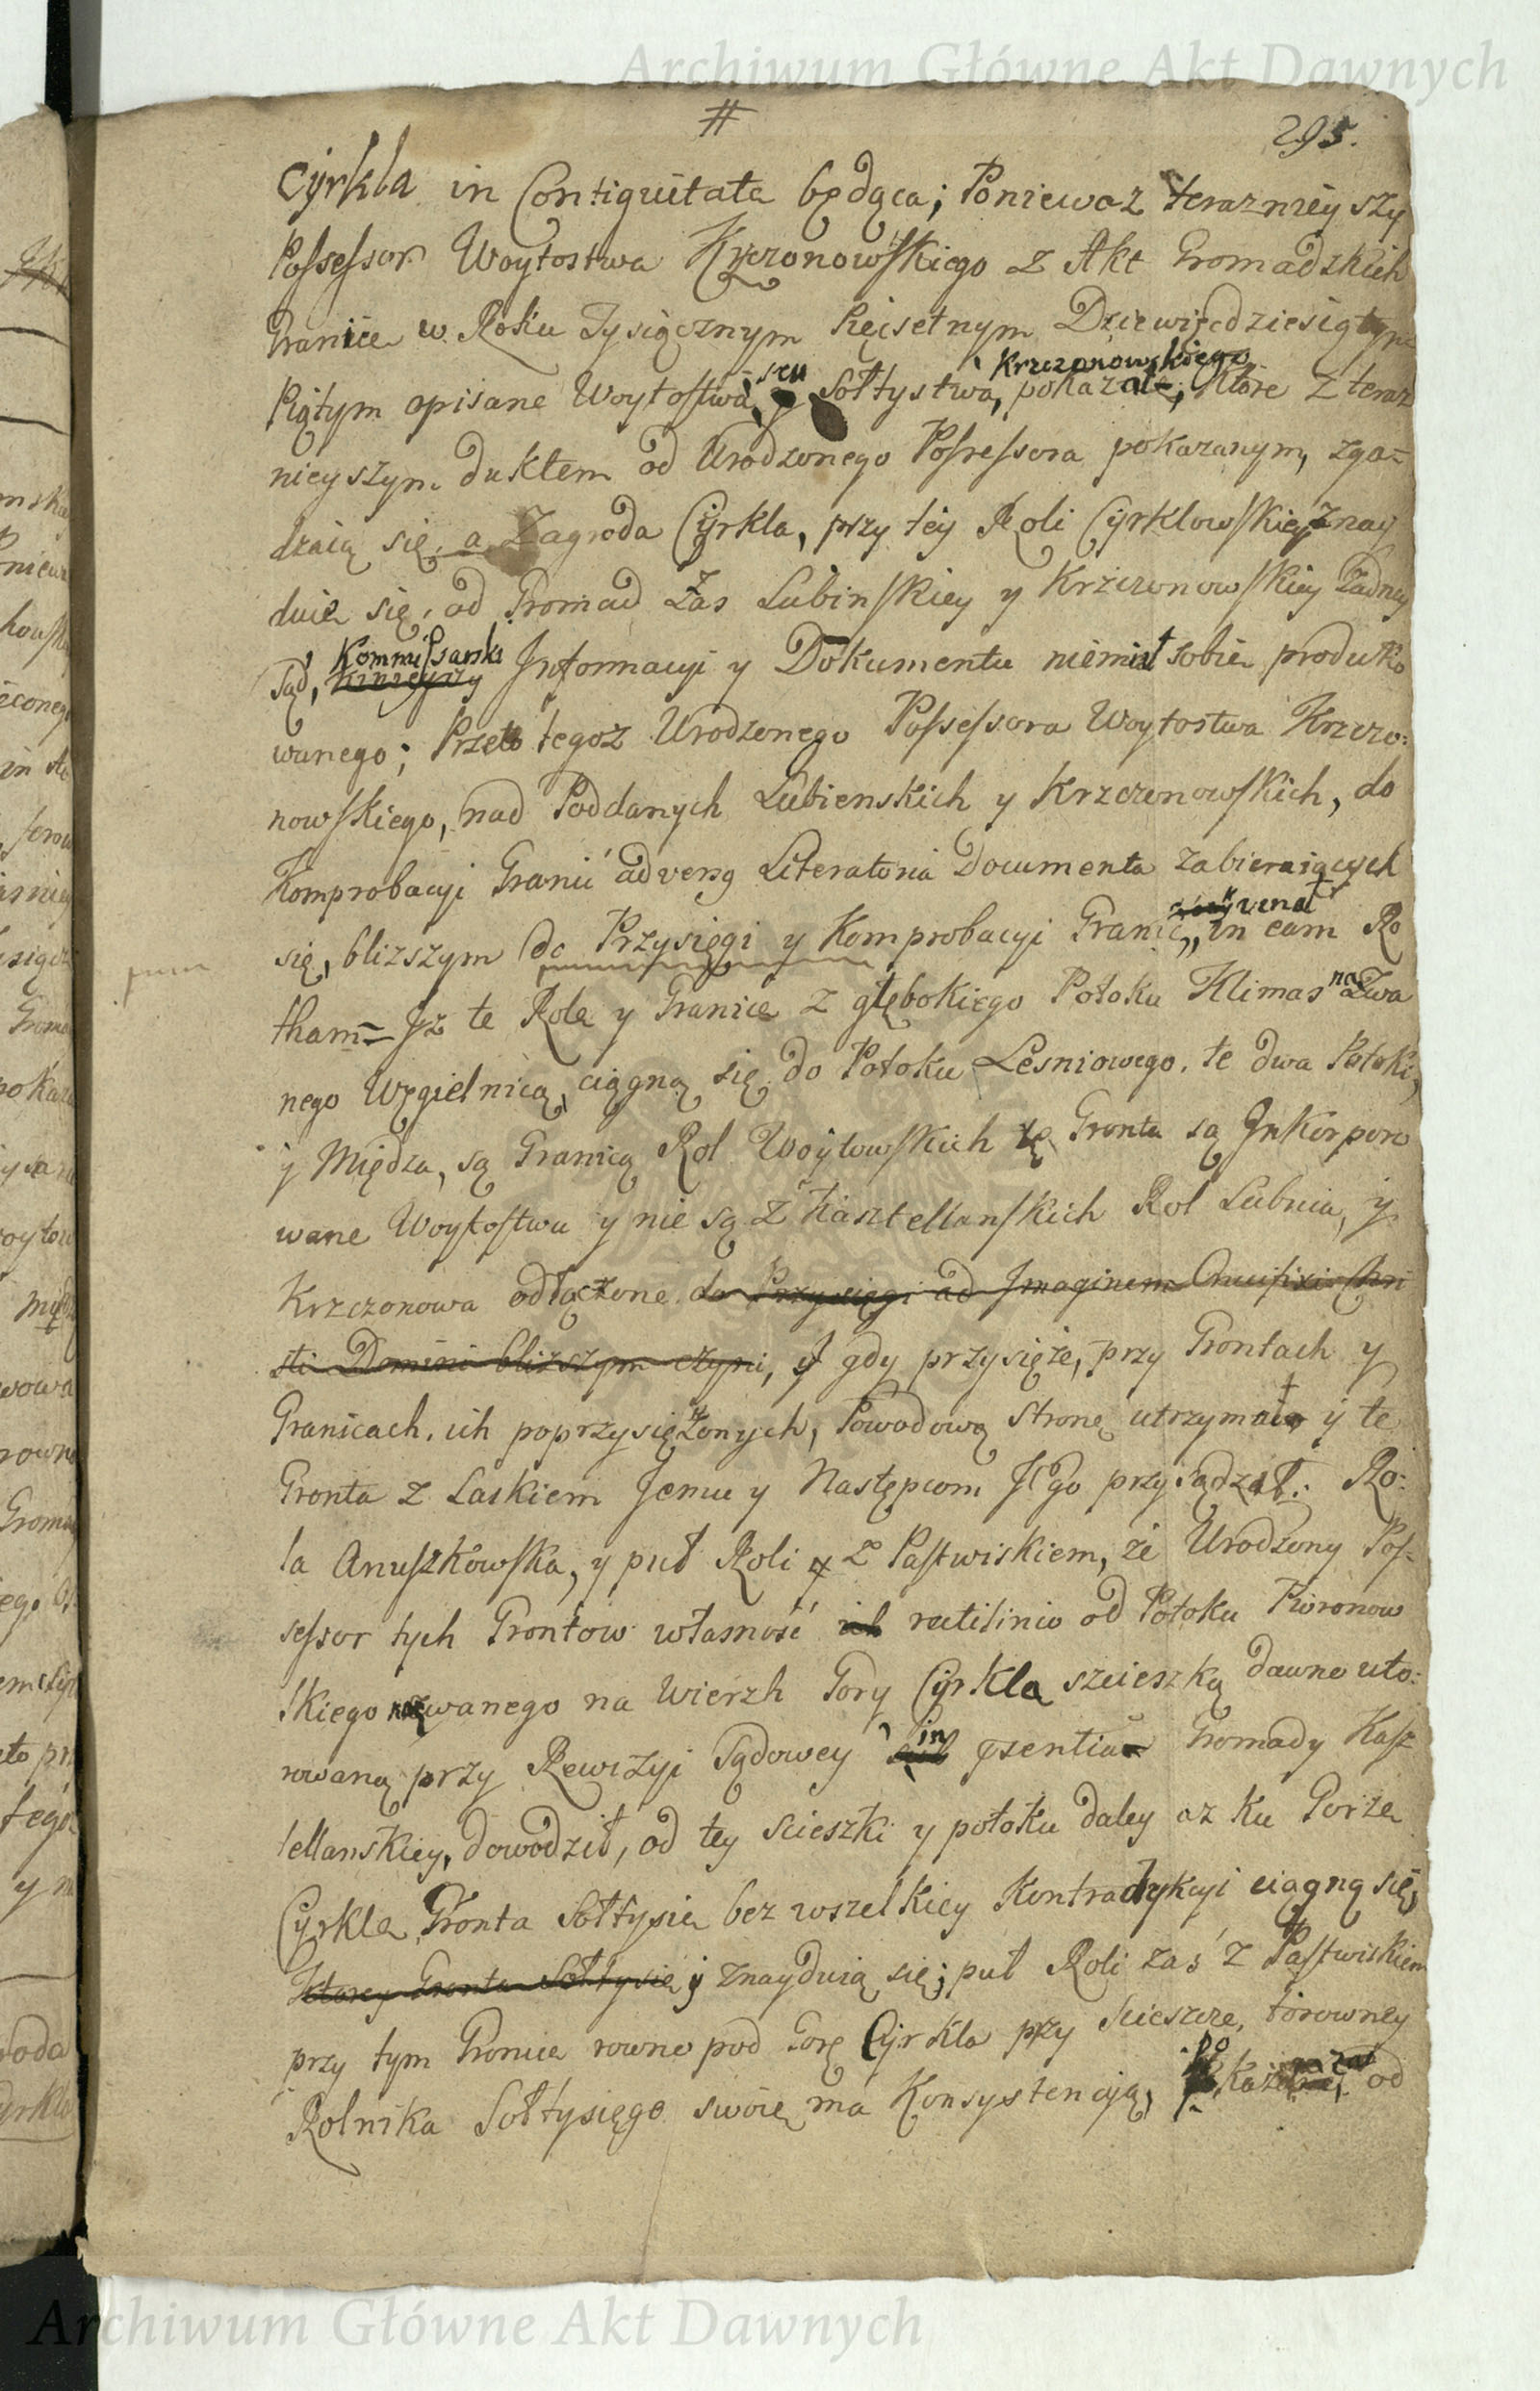 Archiwum Główne Akt Dawnych
#
295.
Cyrkla in Contiguitate będąca; Poniewaz terazniéyszy
Possessor Woytostwa Krzczonowskiego z Akt Gromadzkich
Granice w Roku Tysiącznym Pięcsetnym Dziewięcdziesiątym
Piątym opisane Woytostwa, seu Sołtystwa, Krzczonowskiego pokazał, które z teraz
nieyszym duktem od Urodzonego Possessora pokazanym, zga=
dzaią się, a Zagroda Cyrkla, przy téy Roli Cyrklowskiey znay
duie się, od Gromad Zas Lubinskiey y Krzczonowskiey żadney
Sąd, Kommissarski Informacyi y Dokumentu niemiał sobie produko
wanego; Przeto tegoz Urodzonego Possessora Woytostwa Krzczo:
nowskiego, nad Poddanych Lubienskich y Krzczonowskich, do
Komprobacyi Granic adversq Literatoria Documenta zabieraiących
się, bliższym do Przysięgi y Komprobacyi Granic, uznał in eam Ro
tham= Jż te Role y Granice z głębokiego Potoku Klimas nazwa
nego Węgielnicą, ciągną się do Potoku Lesniowego, te dwa Potoki,
y Między, są Granicą Rol Woytowskich te Gronta są Inkorporo
wane Woytostwu y nie są z Kasztellanskich Rol Lubnia, y
Krzczonowa odłączone do Przysięgi ad Imaginem Crucifixi Chri
sti Domini bliższym czyni, y gdy przysięże, przy Grontach y
Granicach, ich poprzysiężonych, Powodową Stronę utrzymał y te
Gronta z Laskiem Jemu y Następcom Jego przysądził. Ro:
la Anuszkowska, y puł Roli z Pastwiskiem, że Urodzony Pos=
sessor tych Grontow własność rectilinio od Potoku Pioronow
skiego nazwanego na Wierzh Gory Cyrkla szcieszką dawno uto:
rowaną przy Rewizyi Sądowey in Gromady Kasz
tellanskiey, dowodził, od tey scieszki y potoku daley az ku Gorze
Cyrkla Gronta Sołtysie bez wszelkiey Kontradykcyi ciągną się,
ktorey Gronta Sołtysie y znayduią się; puł Roli zaś z Pastwiskiem
przy tym Groncie rowno pod Gorę Cyrkla przy Scieszce, torowney
Rolnika Sołtysiego swoię ma Konsystencyją, od
Archiwum Główne Akt Dawnych